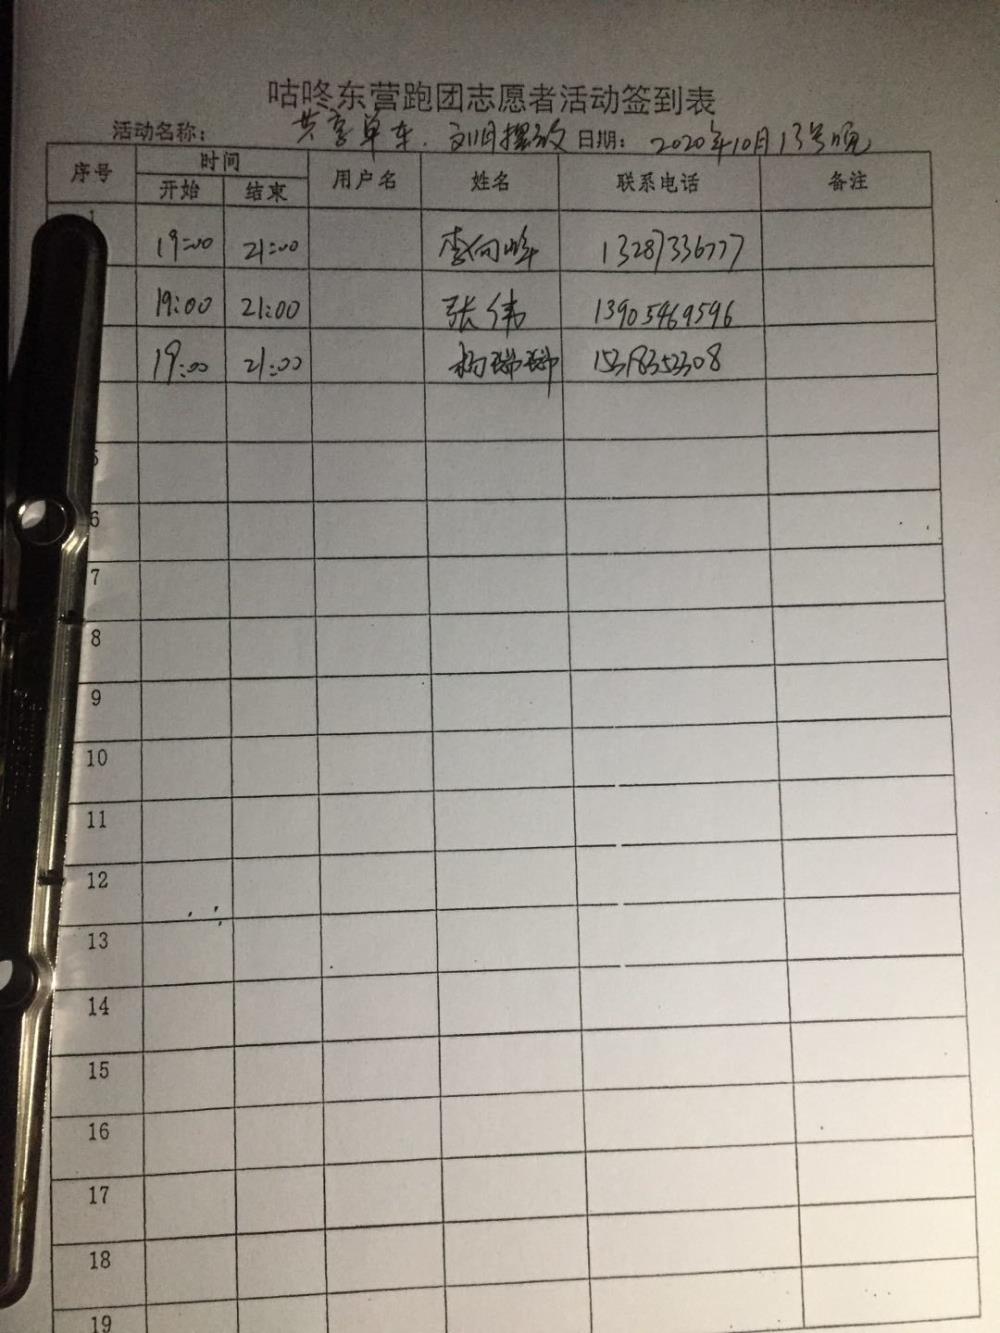 咕咚东营跑团志愿者活动签到表
活动名称: 共享单车. 摆放 日期: 2020年10月13号晚
序号 时间 用户名 姓名 联系电话 备注
开始 结束
1
19:00 21:00 李向峰 13287336777
19:00 21:00 张伟 13905469596
19:00 21:00 杨瑞瑞 15318352308
5
6
7
8
9
10
11
12
13
14
15
16
17
18
19